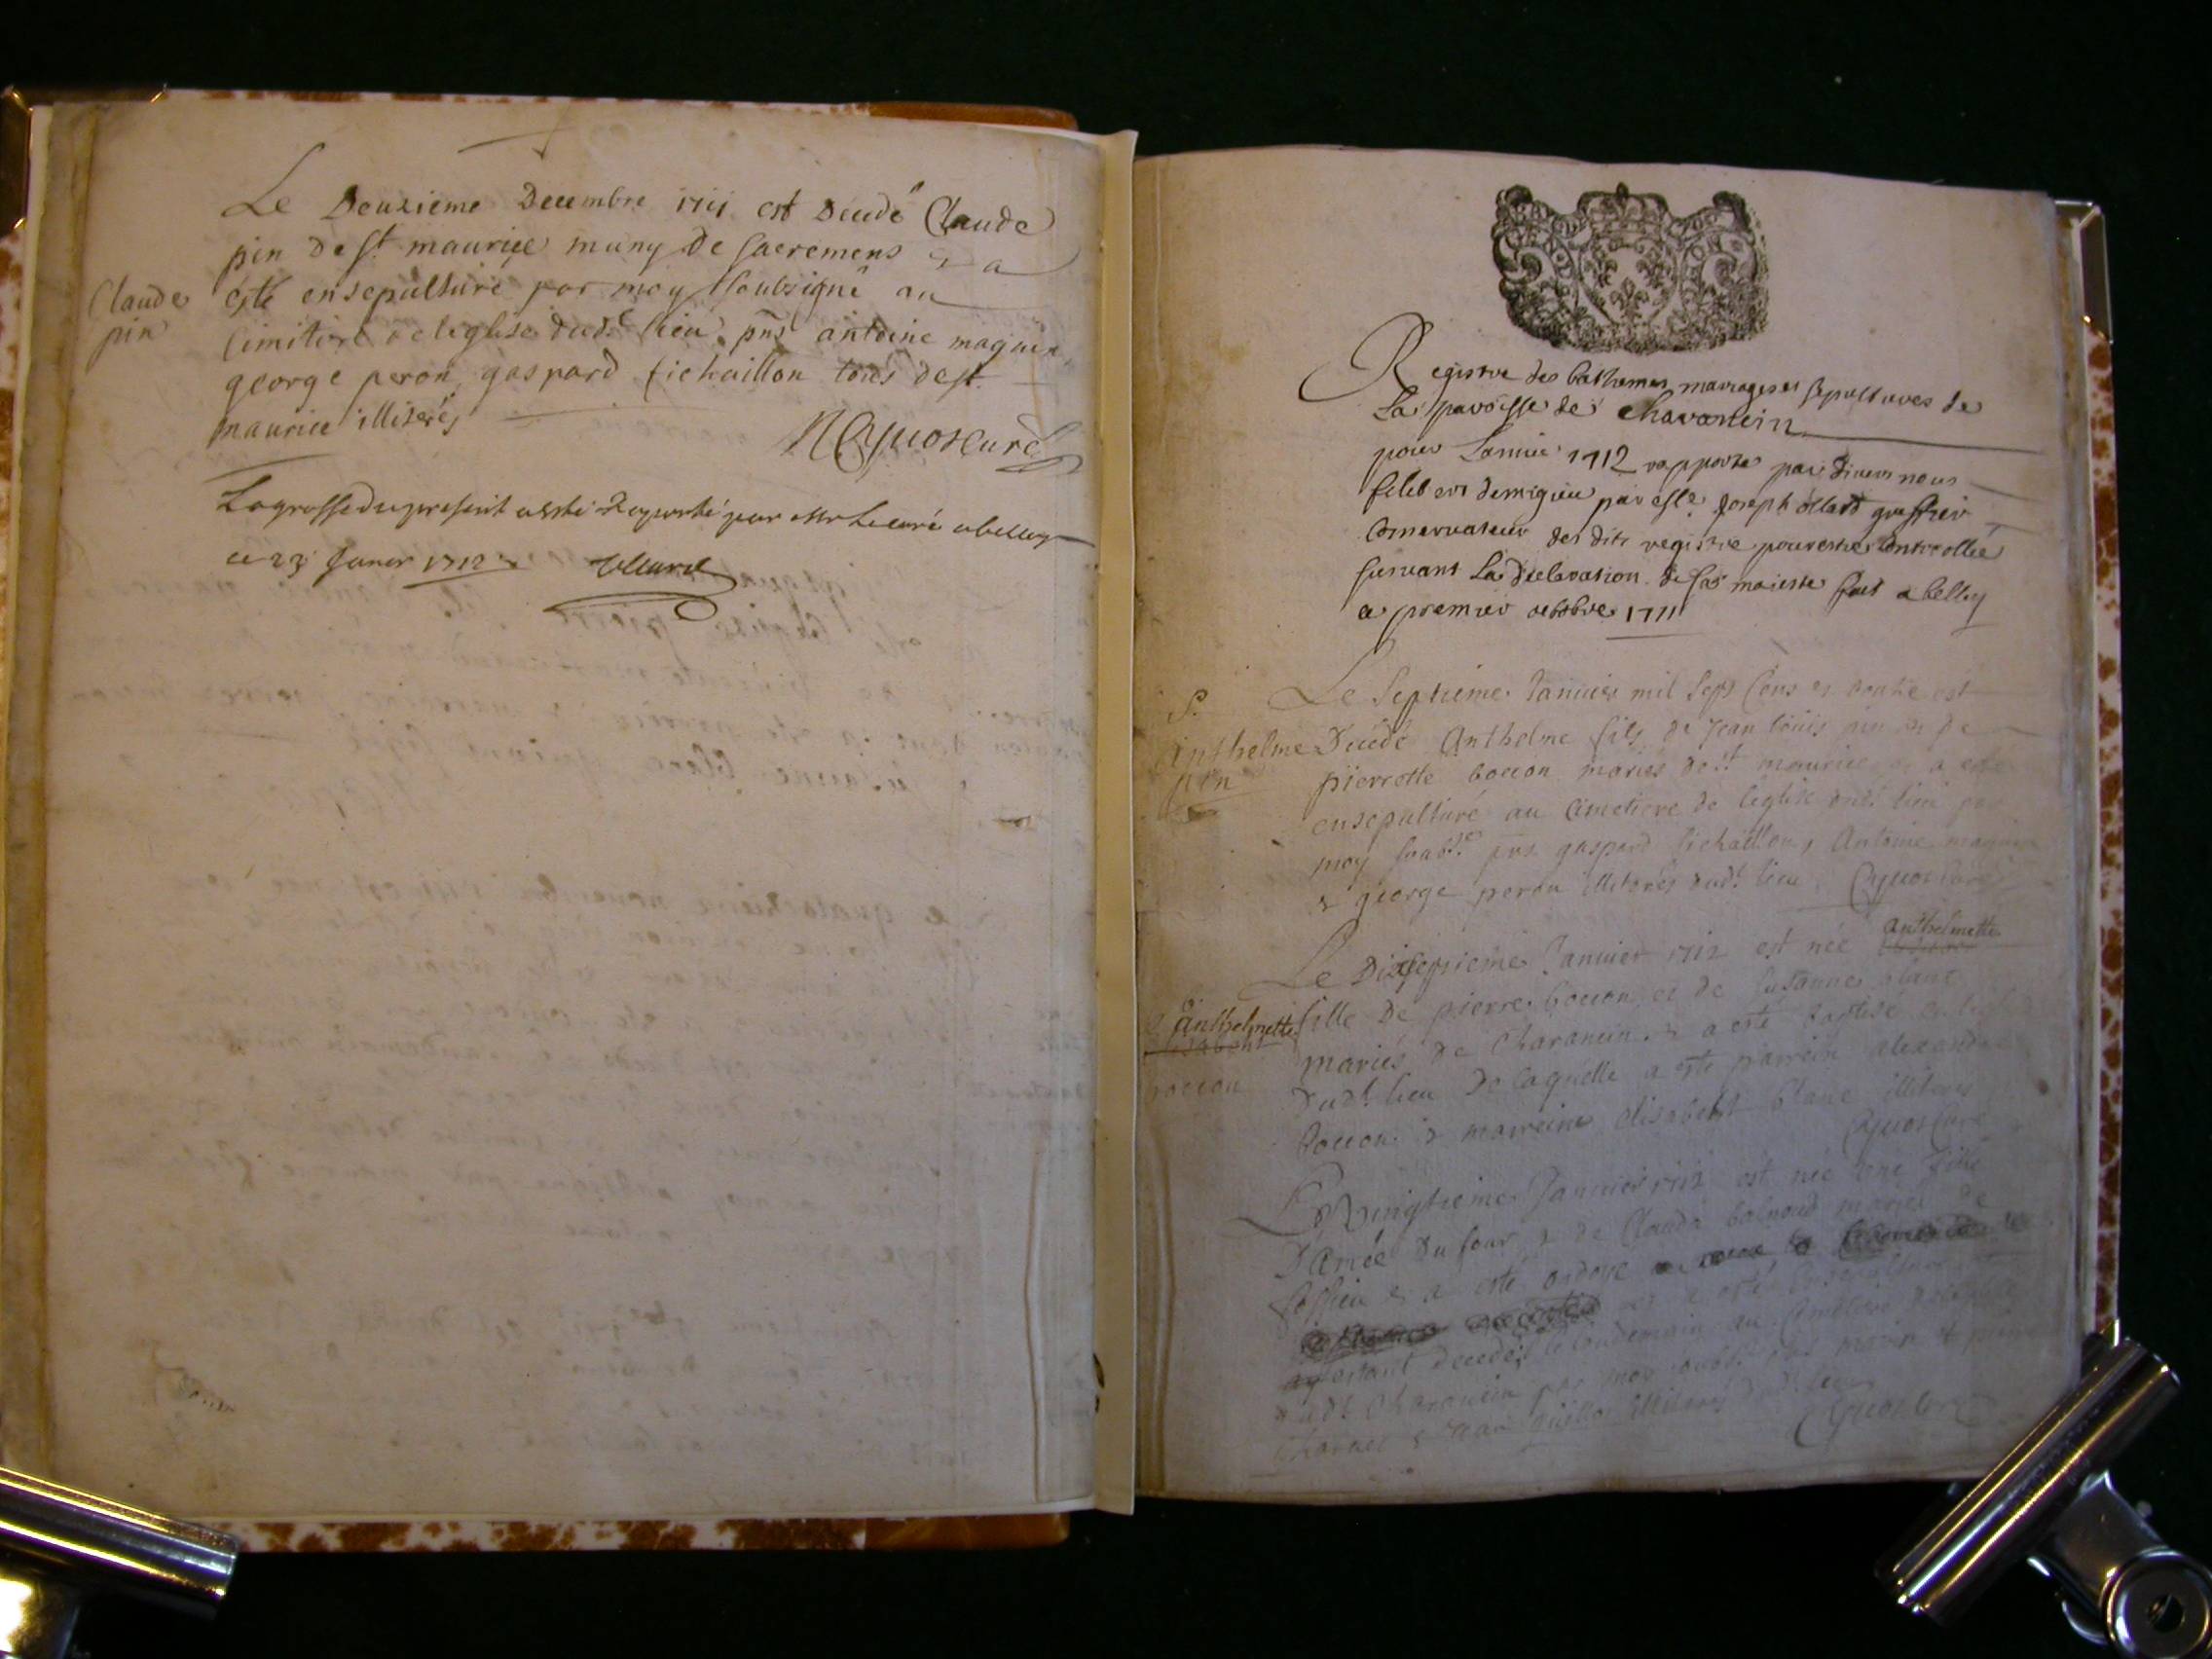 Le Deuxieme Decembre 1711 est Decedé Claude
pin de st maurice muny de sacremens & a
Claude
pin
esté ensepulturé par moy soubsigné au
cimitiere de leglise dudt lieu pns antoine magnin
george peron, gaspard fichaillon tous de st
maurice illiterés
curé
La grosse du present a esté raporté par Mr le curé a belley
ce 23 Janvier 1712
GEN
Registre des bathemes mariages et sepultures de
La parroisse de Charancin
pour Lannée 1712 rapporté par
par Joseph ollard greffier
Conservateur des dits registre pour estre Controollée
suivant La Declaration de sa maiesté fait a belley
ce premier octobre 1711
S.
Anthelme
pin
Le Septieme Janvier mil sept Cens et douze est
Decedé Anthelme fils de Jean louis pin et de
pierrette bocion mariés de st maurice et a esté
ensepulturé au Cimetiere de leglise dudt lieu par
moy soubsé pns gaspard fichaillon, Antoine magnin
& george peron illiterés dudt lieu curé
Le Dixseptieme Janvier 1712 est née Anthelmette
B.
Anthelmette
bocion
fille De pierre bocion et de Susanne blanc
mariés de Charancin & a esté baptisé
Dudt lieu De laquelle a esté parrein alexandre
bocion & marreine elisabeht blanc illiterés
curé
Le vingtieme Janvier 1712 est née une fille
D'Amée Du four & de Claude mariés de
& a esté ondoyé
ayestant decedé le landemain au Cimetiere de leglise
dudt Charancin par moy soubsé pns
& Jean illiterés dudt lieu
curé